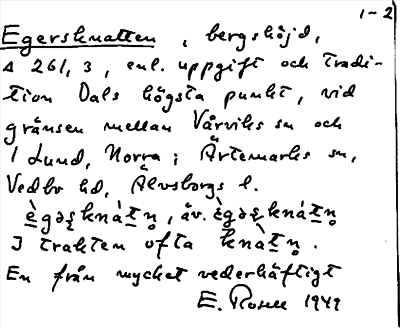 1-2
Egersknatten, bergshöjd,
Δ 261,3, enl. uppgift och tradi-
tion Dals högsta punkt, vid
gränsen mellan Vårviks sn och
1 Lund, Norra; Ärtemarks sn,
Vedbo hd, Älvsborgs l.
äv.
I trakten ofta
En från mycket vederhäftigt
E. Rosell 1949